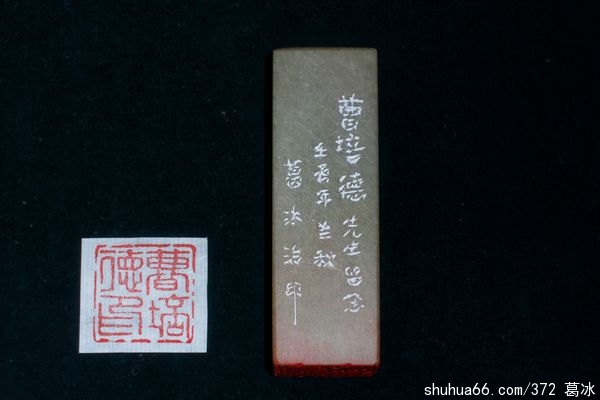 曹培德先生留念
年兰秋
葛冰治印
曹培
德印
shuhua66.com/372 葛冰